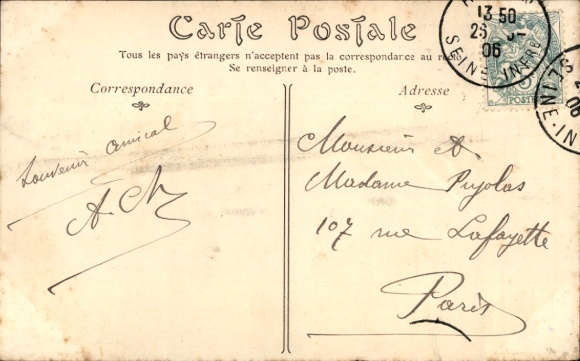 Carte Postale
Tous les pays étrangers n'acceptent pas la correspondance au
Se renseigner à la poste.
Correspondance
Adresse
13 50
26
06
SEINE-INFRE
POSTES
06
Souvenir amical
Monsieur et
Madame Pujolas
107 rue Lafayette
Paris